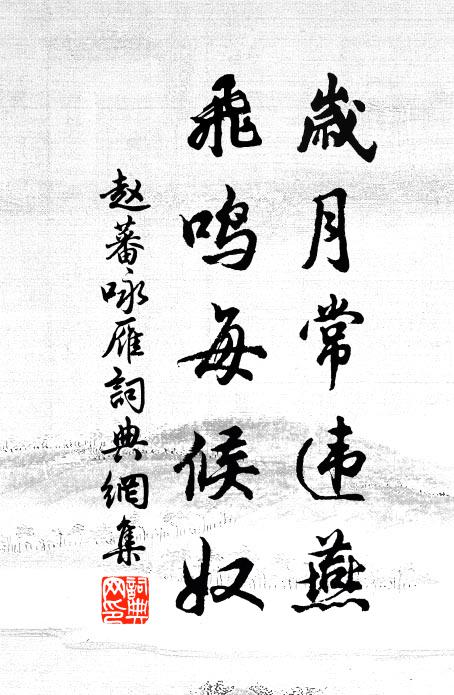 歲月常违燕
飛鸣每候奴
赵蕃咏雁詞典網集
詞典网印